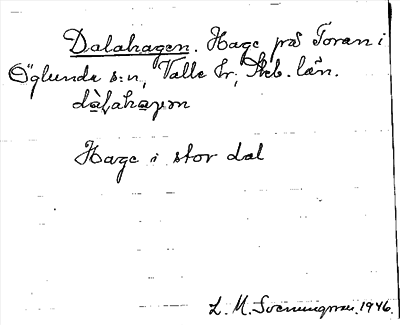 Dalahagen. Hage på Toran i
Öglunda s:n, Valle hr, Skb. län.
dàlahàgən
Hage i stor dal
L. M. Svenungsson. 1946.